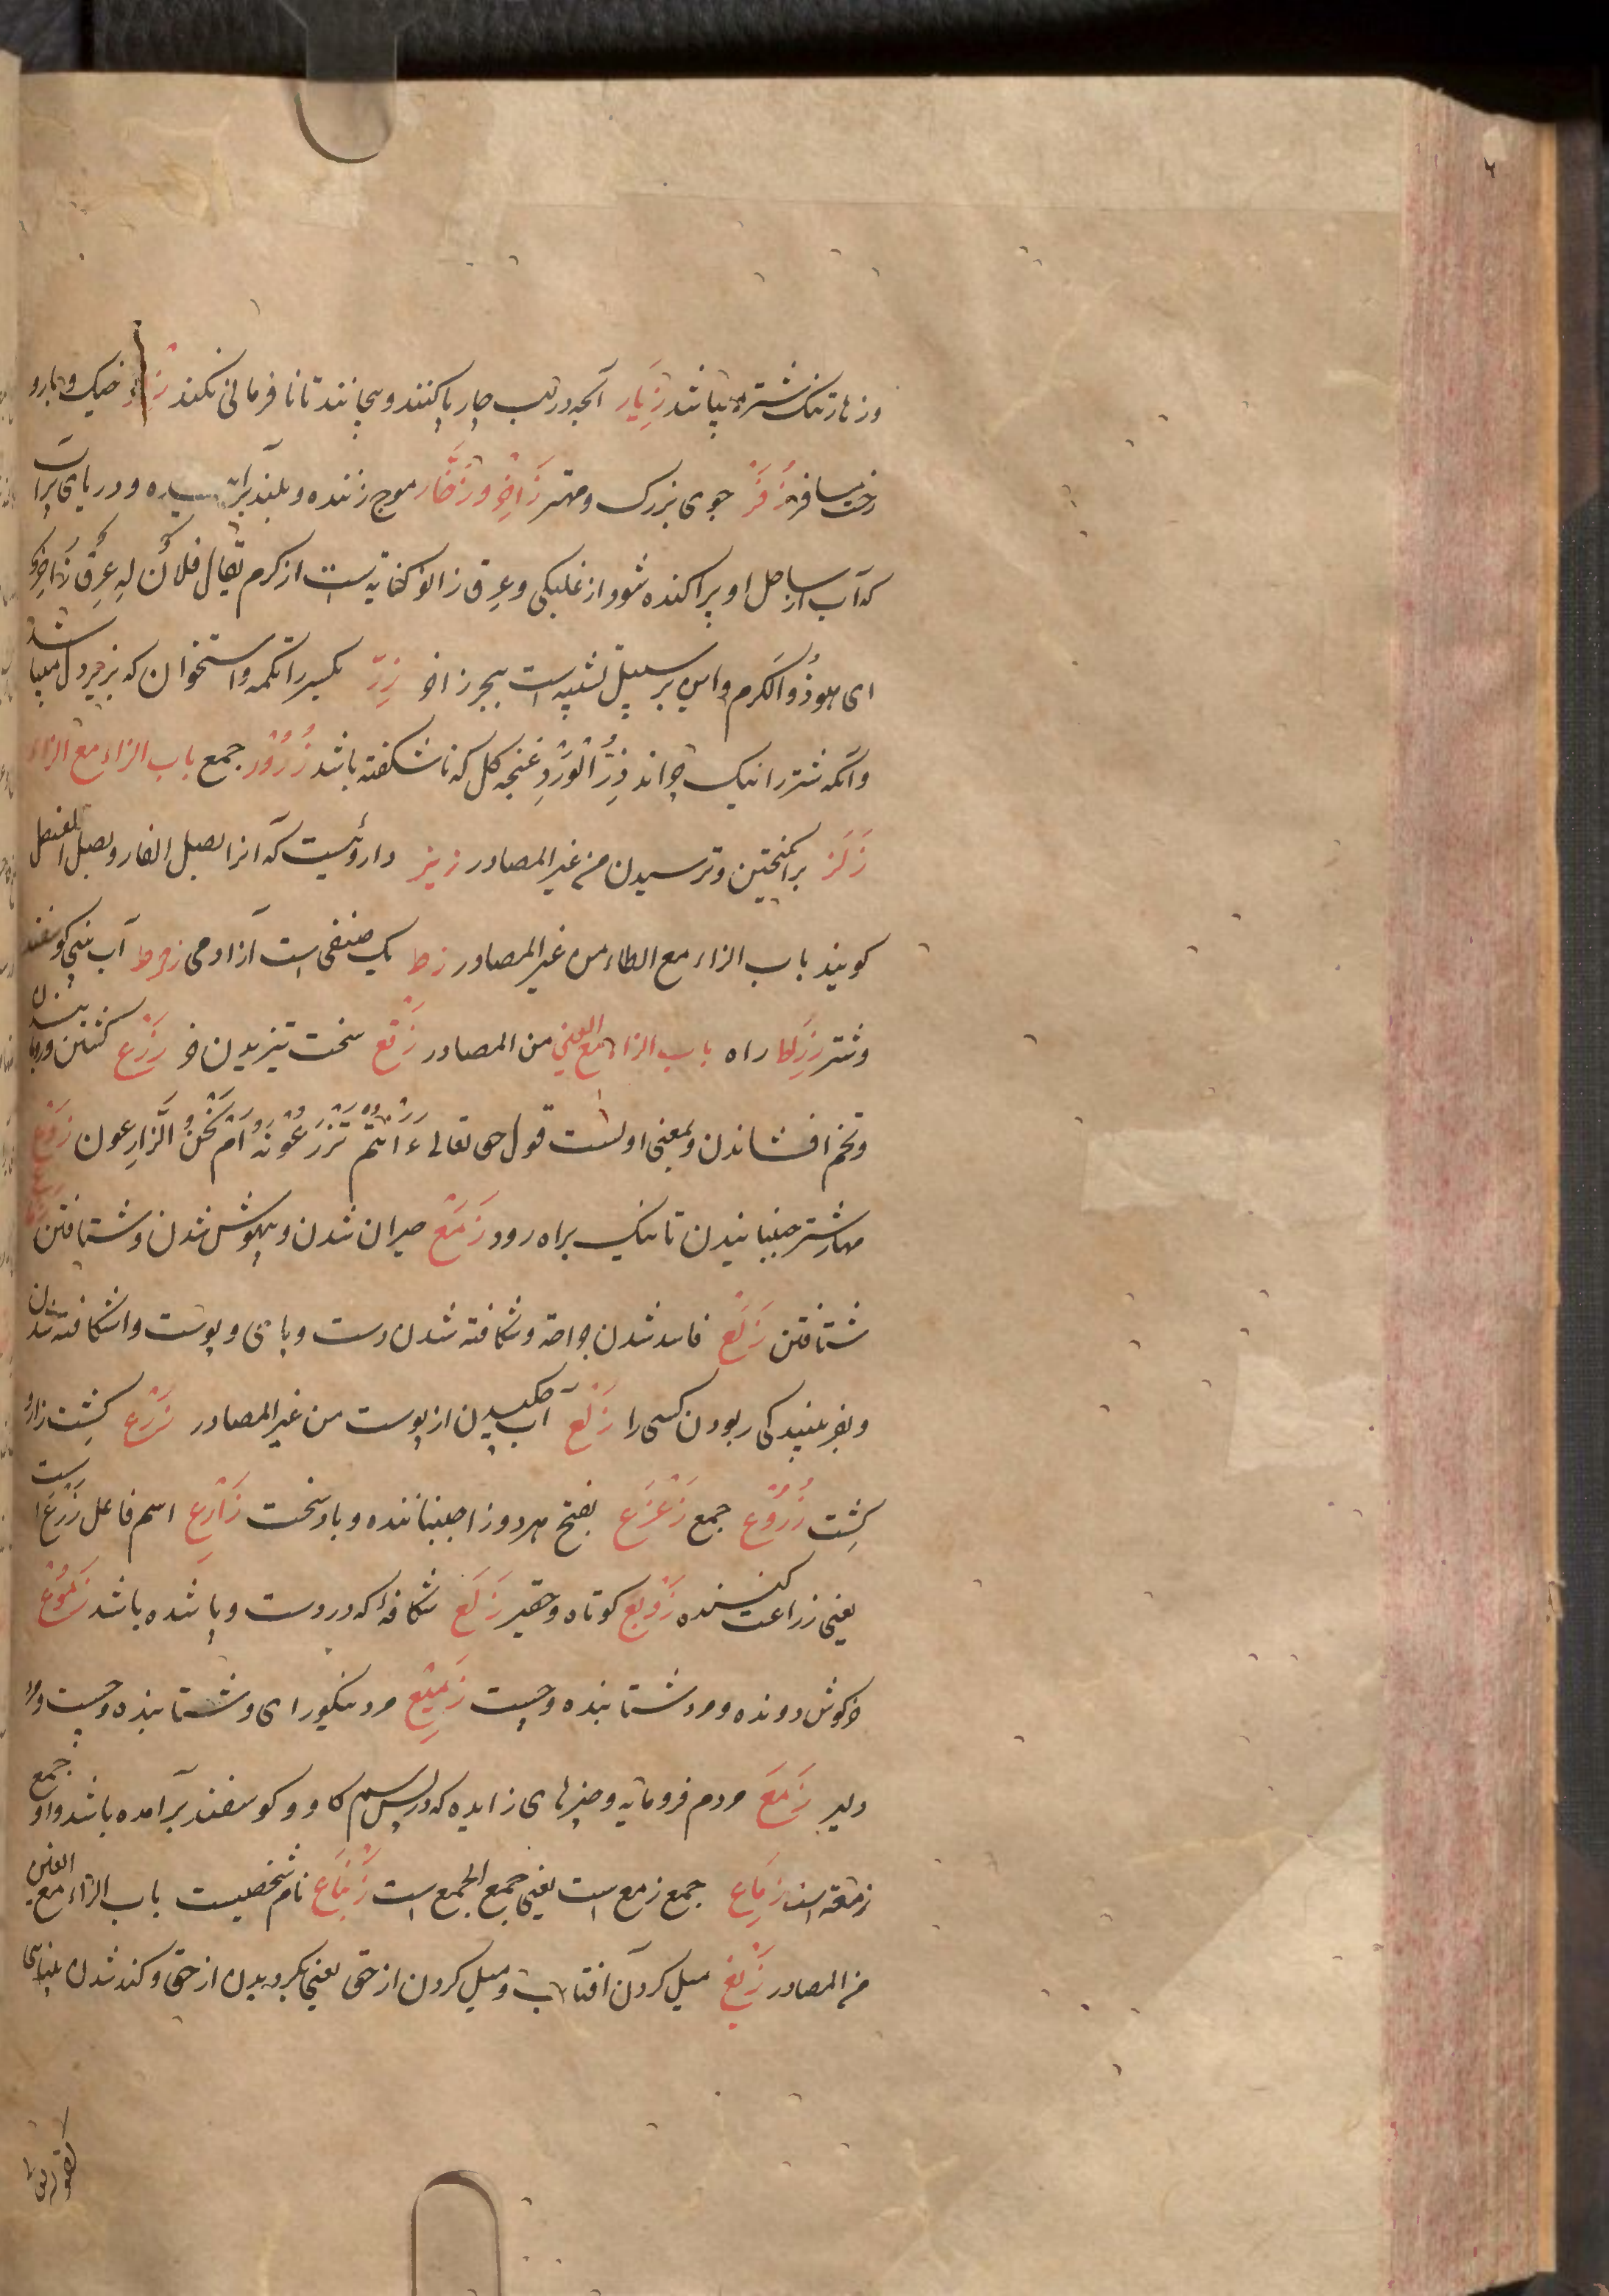 وزهار تنک شتر میباشد زِیَار آنچه در لب چارپا کنند و بپیچانند تا نافرمانی نکند خیک و بار و
رخت مسافر زُفَرْ جوی بزرک و مهتر زَاخِر و زَخَّار موج زننده و بلند برآینده و دریای پرآب
که آب از ساحل او پراکنده شود از غلبکی و عِرق زاخر کنایه است از کرم یقال فلانٌ له عِرقٌ زاخِرٌ
ای هو ذُو الکَرم و این بر سبیل تشبیه است ببحر زاخر زِرّ بکسر را تکمه و استخوان که بزیر دل میباشد
و آنکه شتر را نیک چراند زِرُّ الْوَرْدِ غنچه کل که ناشکفته باشد زُرُوْر جمع باب الزاء مع الزاء
زَلَز برانکیختین و ترسیدن من غیر المصادر زیز داروئیست که آنرا بصل الفار و بصل العنصل
کویند باب الزاء مع الطاء من غیر المصادر زط یک صنفی است از آدمی زمط آب بینی کوسفند
و شتر زِلَا راه باب الزاء مع العین من المصادر زَقْع سخت تیزیدن خر زَرْع کشتن و رویانیدن
و تخم افشاندن و بمعنی اولست قول حق تعالی ءَاَنْتُمْ تَزْرَعُوْنَهُ اَمْ نَحْنُ الزَّارِعون زَوْع
مهار شتر جنبانیدن تا نیک براه رود زَمَعْ حیران شدن و بیهوش شدن و شتافتن
شتافتن زَلَعْ فاسد شدن جراحة و شکافته شدن دست و پای و پوست و اشکافته شدن
و بفریبندکی ربودن کسی را زَلْع آب چکیدن از پوست من غیر المصادر زَرْع کشت زار و
کِشت زُرُوْع جمع زَعْزَع بفتح هر دو زا جنباننده و باد سخت زَارِع اسم فاعل زَرْع است
یعنی زراعت کننده زَوْبَع کوتاه و حقیر زَلَع شکافه که در دست و پا شده باشد زَمُوْع
خرکوش دونده و مرد شتابنده و چست زَمِیْع مرد نیکو رای و شتابنده و چست و مرد
دلیر زَمَع مردم فرومایه و چیزهای زایده که در پس سم کاو و کوسفند برآمده باشد و او جمع
زمعة است زِمَاع جمع زمع است یعنی جمع الجمع است زِنْبَاع نام شخصیست باب الزاء مع الغین
من المصادر زَیْغ میل کردن آفتاب و میل کردن از حق یعنی بکردیدن از حق و کند شدن بینائی